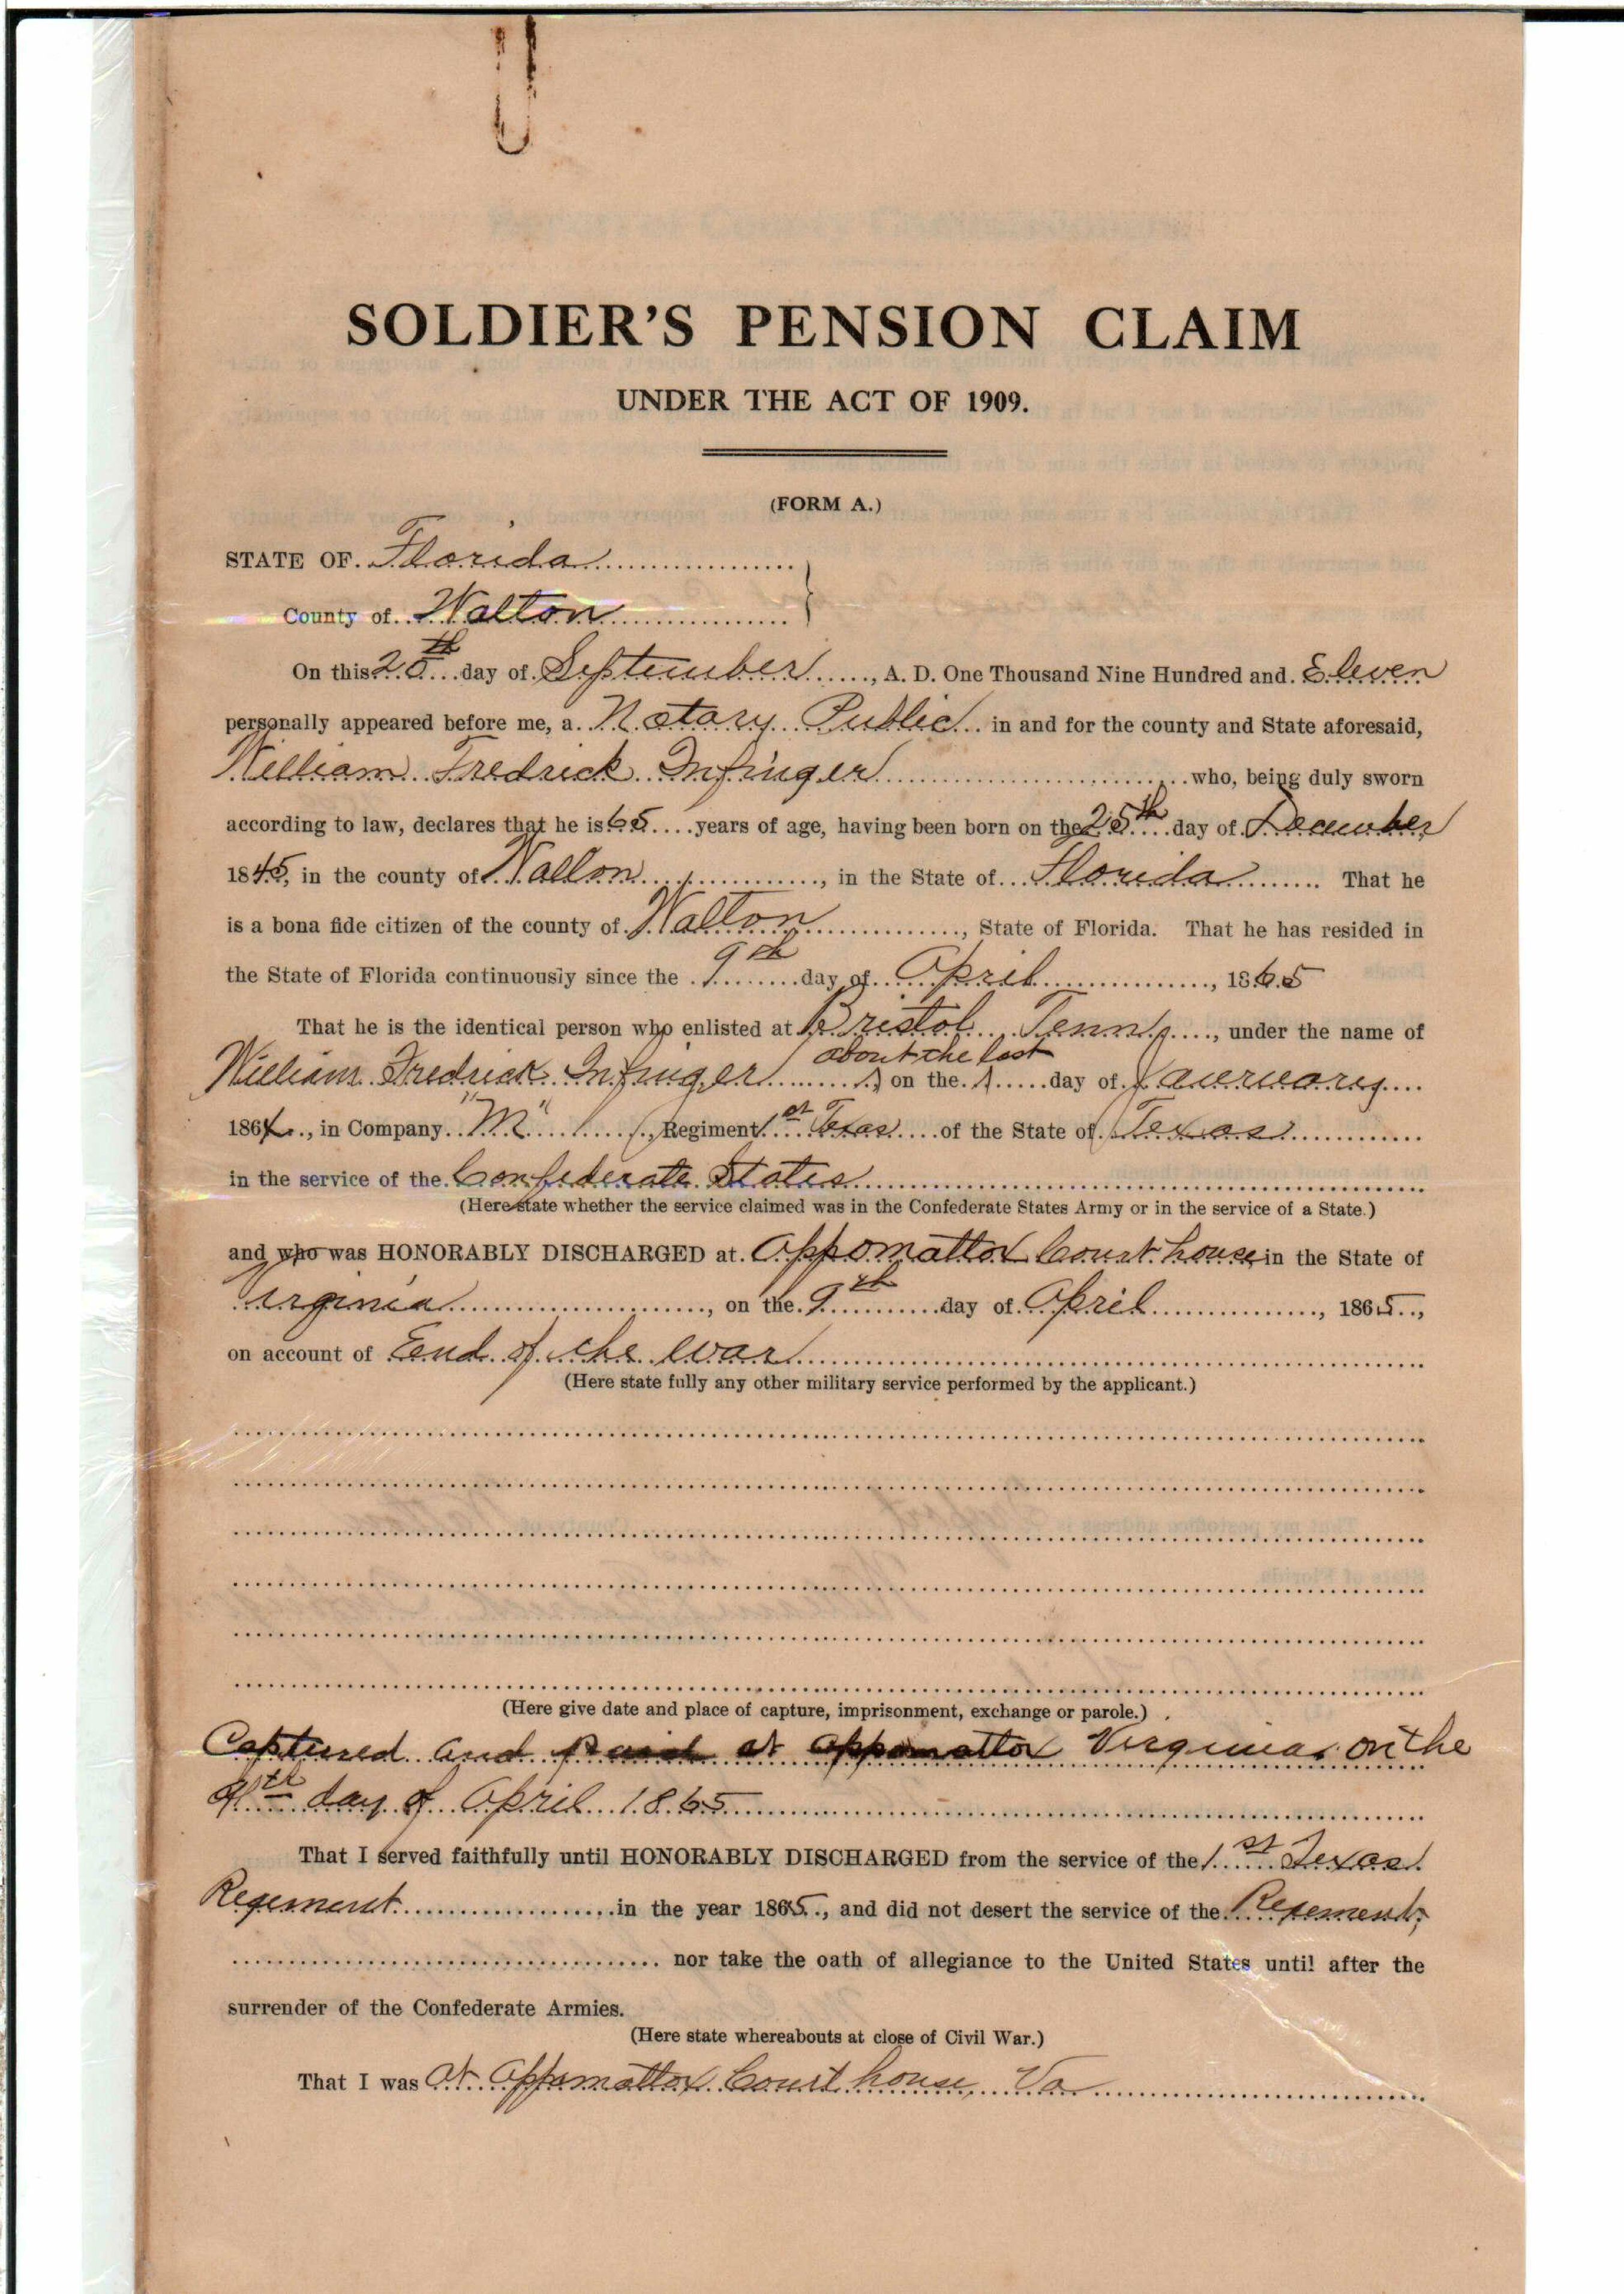 SOLDIER'S PENSION CLAIM
UNDER THE ACT OF 1909.
(FORM A.)
STATE OF Florida
County of Walton
On this 20th day of September, A. D. One Thousand Nine Hundred and Eleven
personally appeared before me, a Notary Public in and for the county and State aforesaid,
William Fredrick Infinger who, being duly sworn
according to law, declares that he is 65 years of age, having been born on the 25th day of December
1845, in the county of Walton, in the State of Florida That he
is a bona fide citizen of the county of Walton, State of Florida. That he has resided in
the State of Florida continuously since the 9th day of April, 1865
That he is the identical person who enlisted at Bristol Tenn, under the name of
about the last
William Fredrick Infinger, on the day of January
1864, in Company "M", Regiment 1st Texas of the State of Texas
in the service of the Confederate States
(Here state whether the service claimed was in the Confederate States Army or in the service of a State.)
and who was HONORABLY DISCHARGED at Appomattox Court house in the State of
Virginia, on the 9th day of April, 1865,
on account of End of the War
(Here state fully any other military service performed by the applicant.)
(Here give date and place of capture, imprisonment, exchange or parole.)
Captured and at Appomattox Virginia on the
9th day of April 1865
That I served faithfully until HONORABLY DISCHARGED from the service of the 1st Texas
Regement in the year 1865, and did not desert the service of the Regement,
nor take the oath of allegiance to the United States until after the
surrender of the Confederate Armies.
(Here state whereabouts at close of Civil War.)
That I was at Appomattox Court house, Va